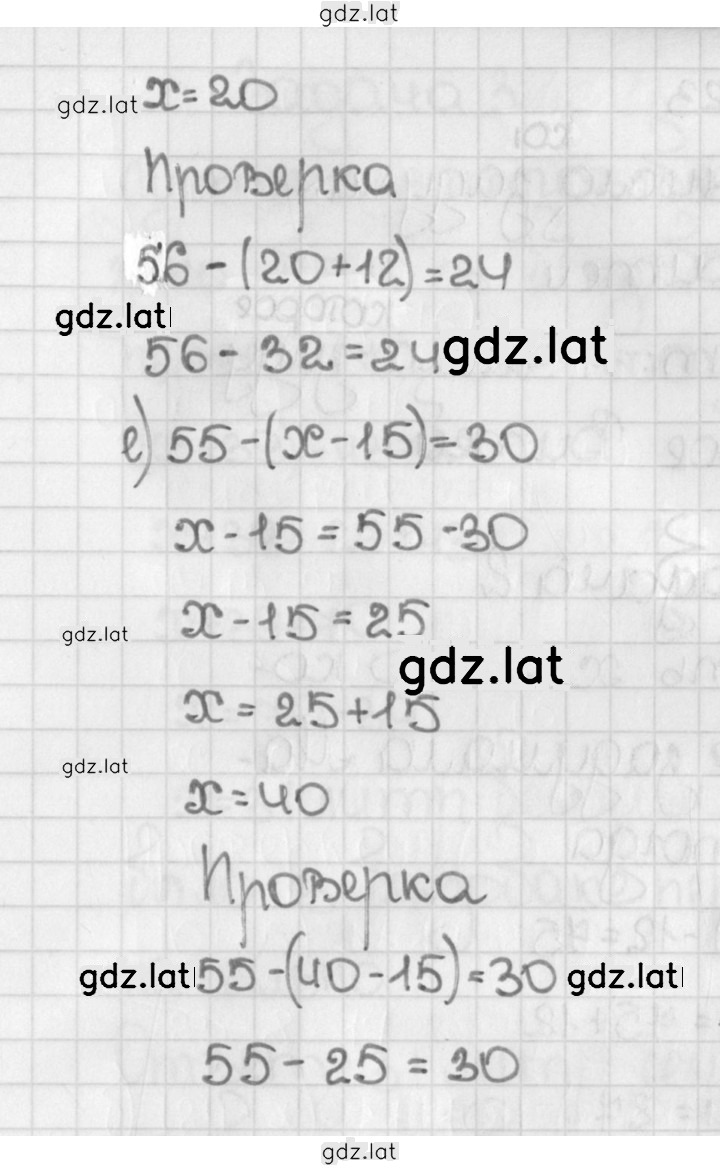 gdz.lat
gdz.lat x=20
Проверка
56-(20+12)=24
gdz.lat
56-32=24 gdz.lat
е) 55-(x-15)=30
x-15=55-30
x-15=25
gdz.lat
gdz.lat
x=25+15
gdz.lat
x=40
Проверка
gdz.lat 55-(40-15)=30 gdz.lat
55-25=30
gdz.lat